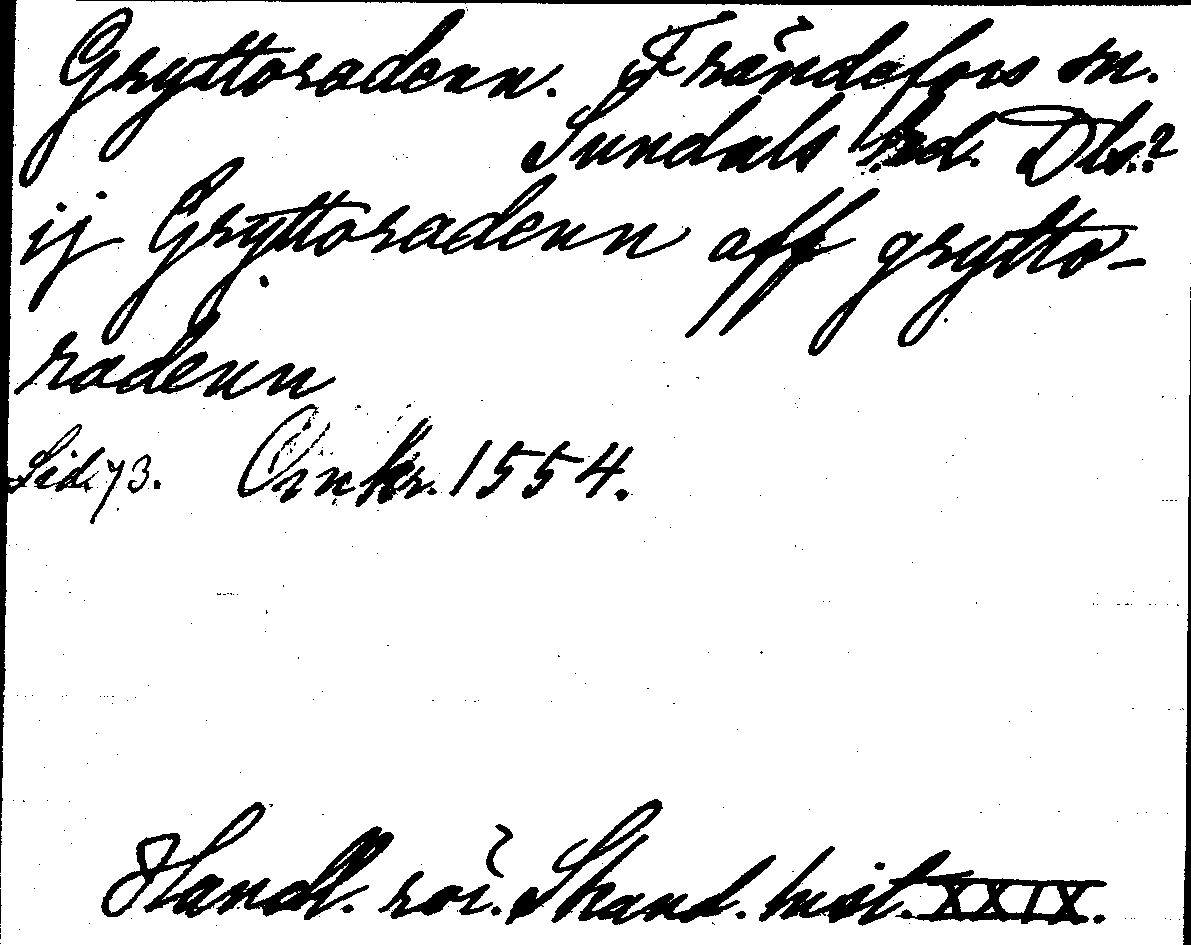 Gryttoradenn. Frändefors sn.
Sundals hd. Dls.?
ij Gryttoradenn aff grytto-
radenn
Sid. 73. Omkr. 1554.
Handl. rör. Skand. hist. XXIX.